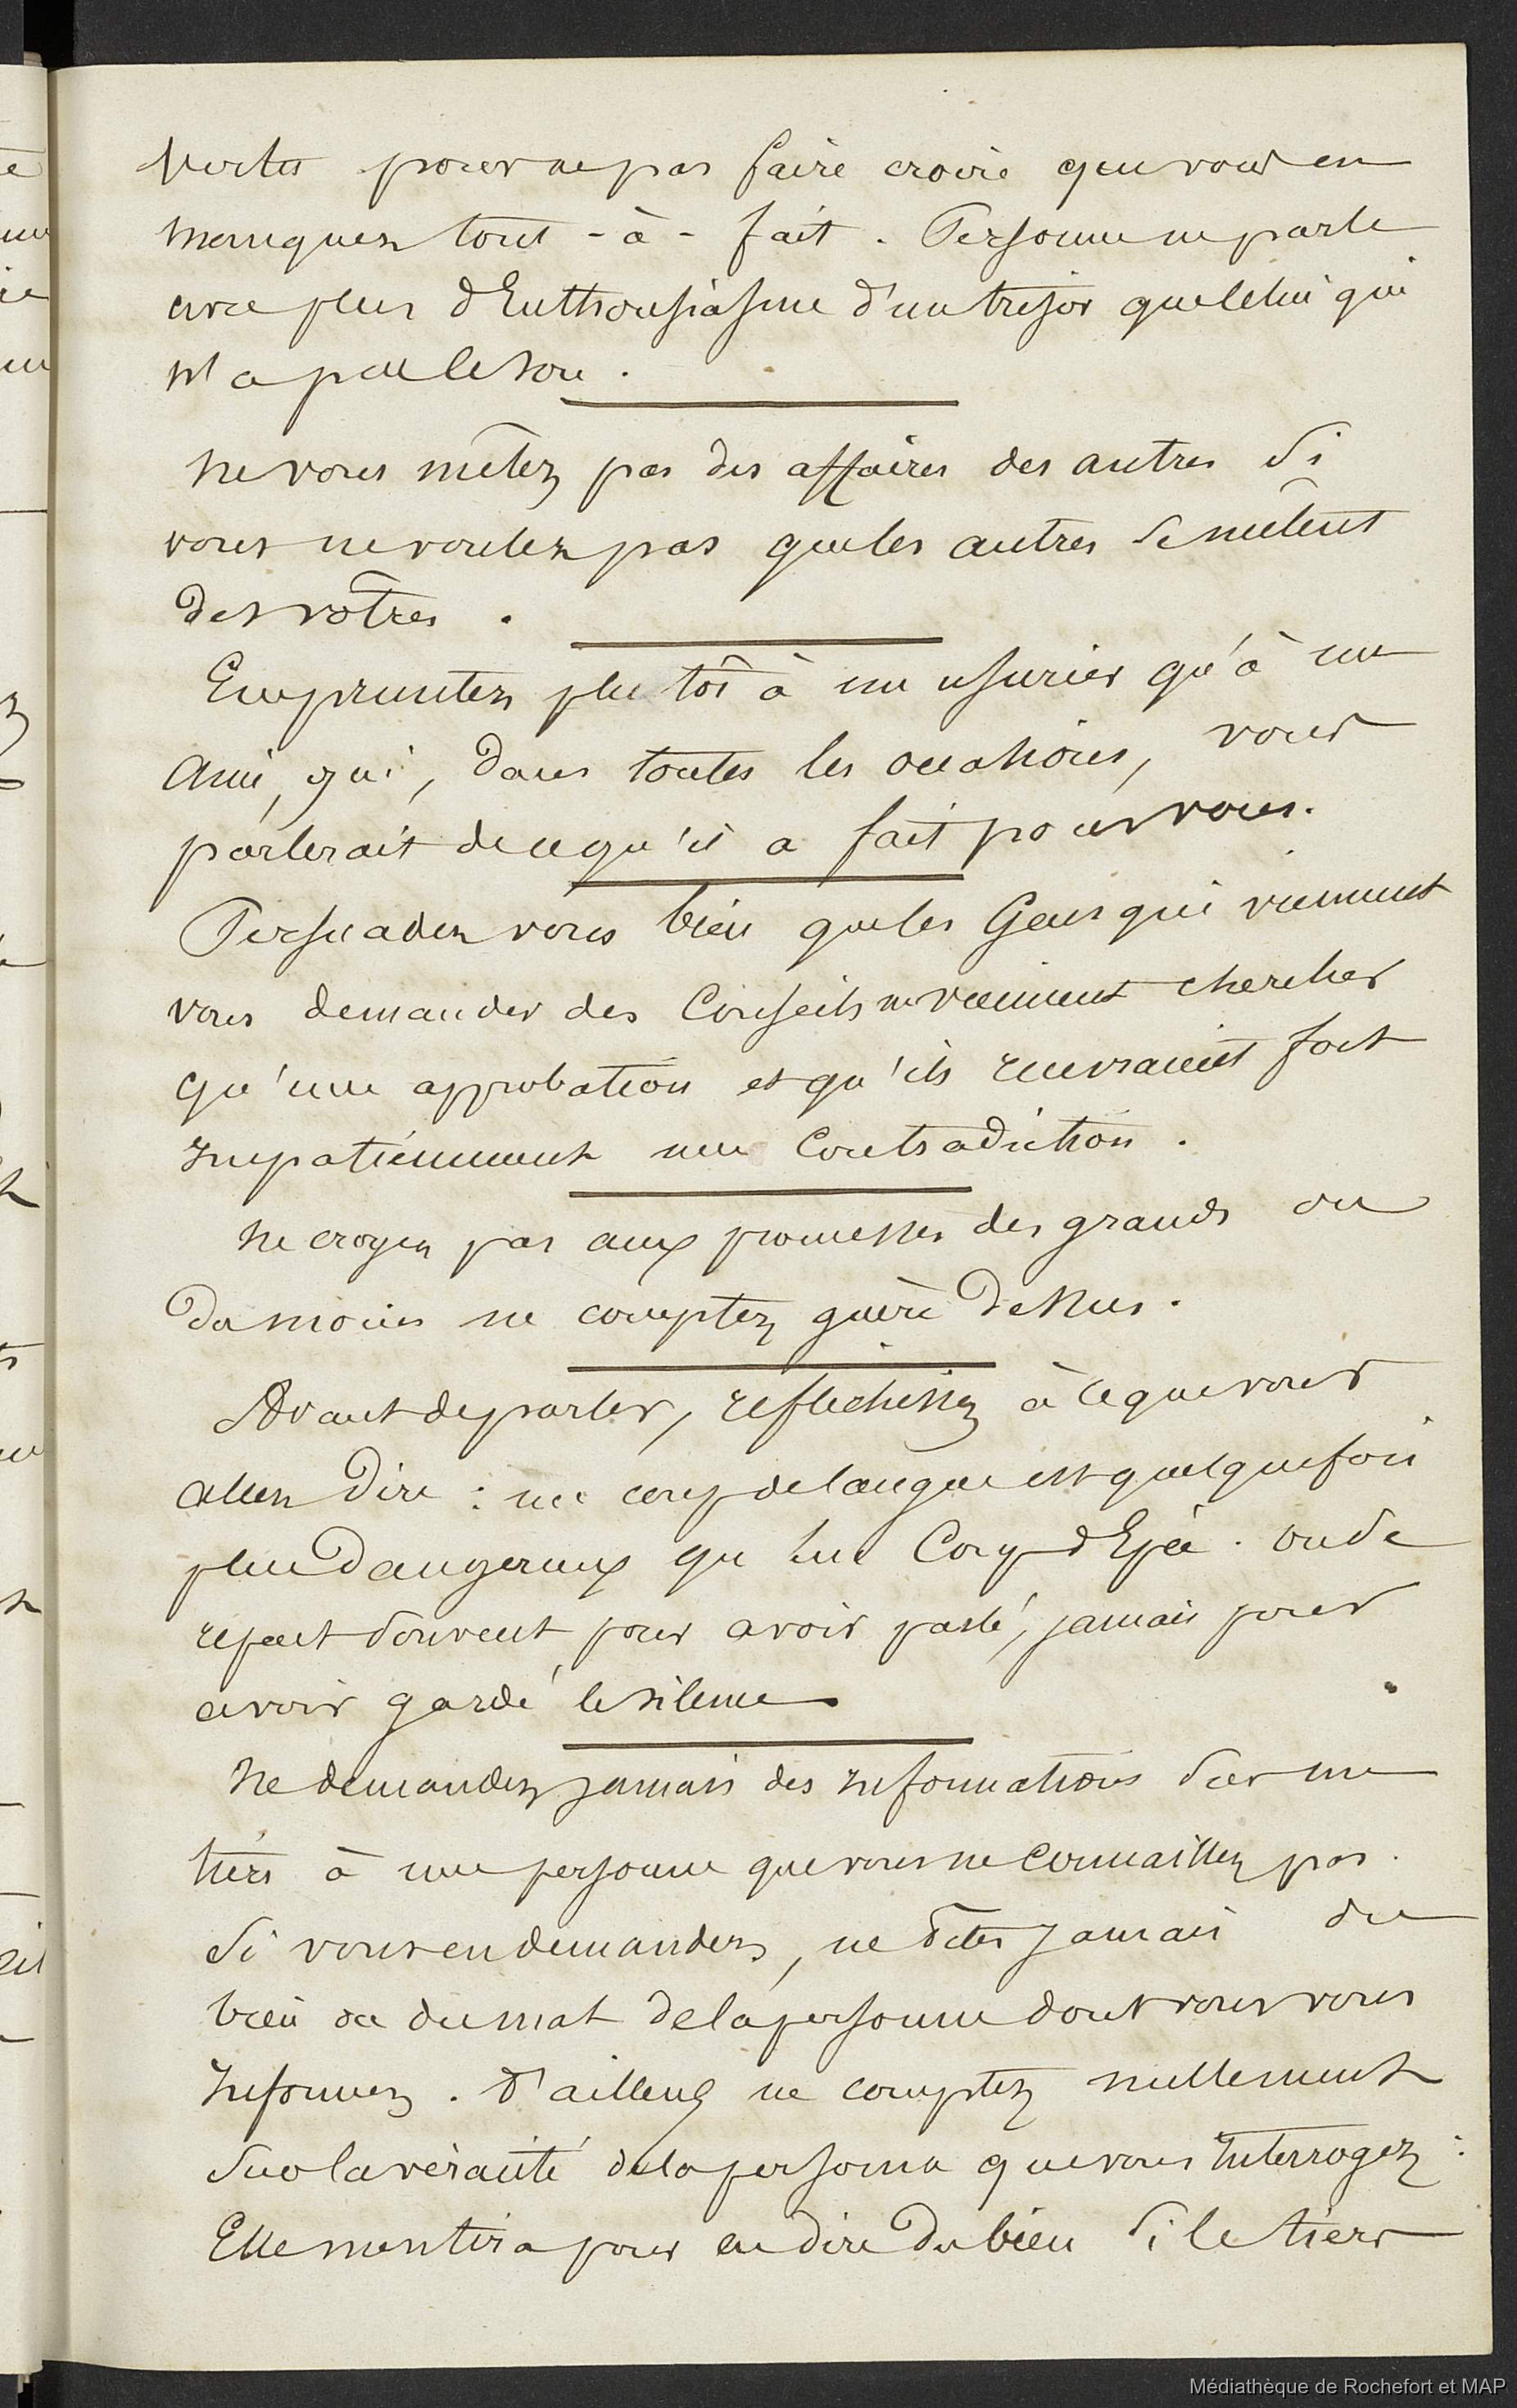 Vertus pour ne pas faire croire que vous en
manquez tout-à-fait. Personne ne parle
avec plus d'Enthousiasme d'un trésor que celui qui
n'a pas le sou.
Ne vous mêlez pas des affaires des autres si
vous ne voulez pas que les autres se mêlent
des vôtres.
Empruntez plutôt à un usurier qu'à un
ami, qui, dans toutes les occasions, vous
parlerait de ce qu'il a fait pour vous.
Persuadez vous bien que les Gens qui viennent
vous demander des Conseils ne viennent chercher
qu'une approbation et qu'ils recevraient fort
Impatiemment une Contradiction.
Ne croyez pas aux promesses des grands ou
du moins ne comptez guère dessus.
Avant de parler, reflechissez à ce que vous
allez dire : un coup de langue est quelquefois
plus dangereux qu'un Coup d'Epée. On se
repent souvent pour avoir parlé, jamais pour
avoir gardé le silence.
Ne demandez jamais des Informations sur un
tiers à une personne que vous ne connaissez pas.
Si vous en demandez, ne dites jamais du
bien ou du mal de la personne dont vous vous
Informez. D'ailleurs ne comptez nullement
sur la véracité de la personne que vous Interrogez :
Elle mentira pour en dire du bien si le tiers
Médiathèque de Rochefort et MAP